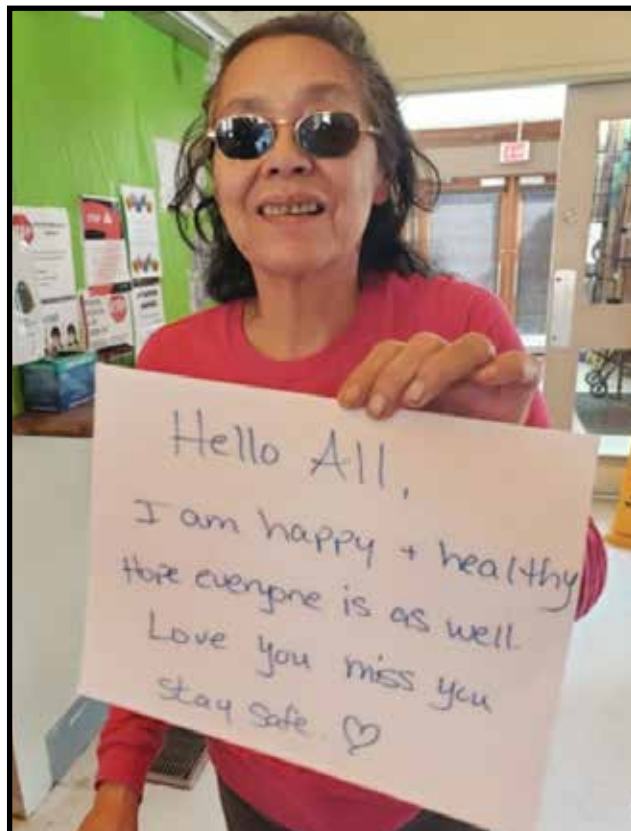 Hello All,
I am happy + healthy
Hope everyone is as well.
Love you miss you
stay safe. ♡